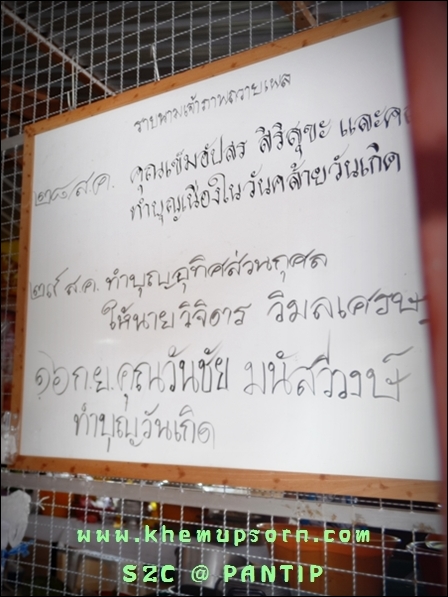 รายนามเจ้าภาพถวายเพล
๒๘ ส.ค. คุณเข็มอัปสร สิริสุขะ และค
ทำบุญเนื่องในวันคล้ายวันเกิด
๒๙ ส.ค. ทำบุญอุทิศส่วนกุศล
ให้นายวิจิตาร วิมลเศรษ
๑๖ ก.ย. คุณวันชัย มนัสวีวงษ์
ทำบุญวันเกิด
www.khemupsorn.com
S2C @ PANTIP